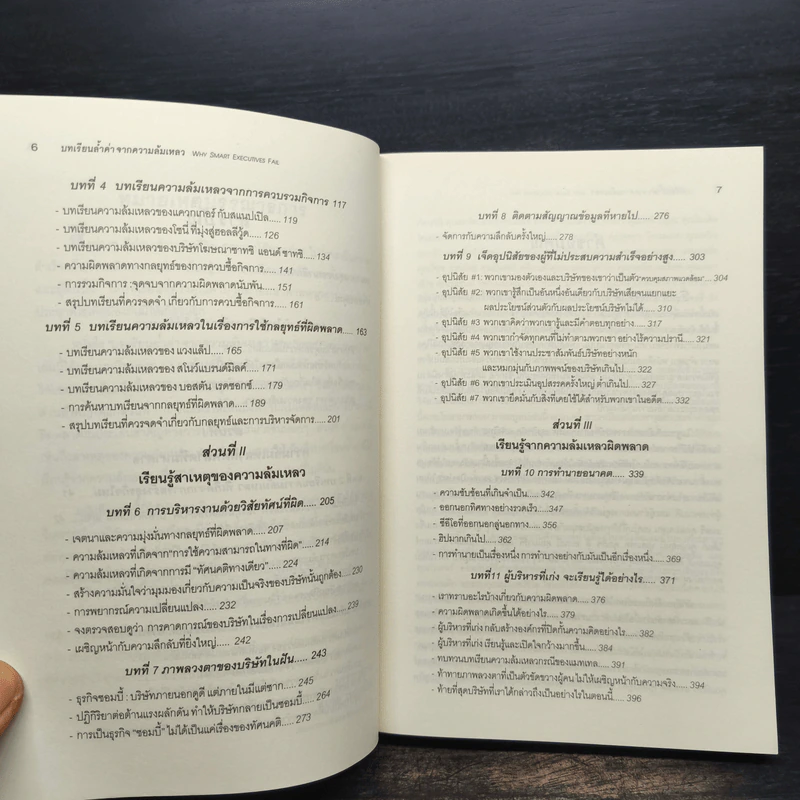 6 บทเรียนล้ำค่า จากความล้มเหลว WHY SMART EXECUTIVES FAIL
บทที่ 4 บทเรียนความล้มเหลวจากการควบรวมกิจการ 117
- บทเรียนความล้มเหลวของแควกเกอร์ กับสแนปเปิล..... 119
- บทเรียนความล้มเหลวของโซนี่ ที่มุ่งสู่ฮอลลีวู้ด..... 126
- บทเรียนความล้มเหลวของบริษัทโฆษณาซาทชิ แอนด์ ซาทชิ..... 134
- ความผิดพลาดทางกลยุทธ์ของการควบซื้อกิจการ..... 141
- การรวมกิจการ :จุดจบจากความผิดพลาดนับพัน..... 151
- สรุปบทเรียนที่ควรจดจำ เกี่ยวกับการควบซื้อกิจการ..... 161
บทที่ 5 บทเรียนความล้มเหลวในเรื่องการใช้กลยุทธ์ที่ผิดพลาด..... 163
- บทเรียนความล้มเหลวของ แวงแล็ป..... 165
- บทเรียนความล้มเหลวของ สโนว์แบรนด์มิลค์..... 171
- บทเรียนความล้มเหลวของ บอสตัน เรดซอกซ์..... 179
- การค้นหาบทเรียนจากกลยุทธ์ที่ผิดพลาด..... 189
- สรุปบทเรียนที่ควรจดจำเกี่ยวกับกลยุทธ์และการบริหารจัดการ..... 201
ส่วนที่ II
เรียนรู้สาเหตุของความล้มเหลว
บทที่ 6 การบริหารงานด้วยวิสัยทัศน์ที่ผิด..... 205
- เจตนาและความมุ่งมั่นทางกลยุทธ์ที่ผิดพลาด..... 207
- ความล้มเหลวที่เกิดจาก"การใช้ความสามารถในทางที่ผิด"..... 214
- ความล้มเหลวที่เกิดจากการมี "ทัศนคติทางเดียว"..... 224
- สร้างความมั่นใจว่ามุมมองเกี่ยวกับความเป็นจริงของบริษัทนั้นถูกต้อง..... 230
- การพยากรณ์ความเปลี่ยนแปลง..... 232
- จงตรวจสอบดูว่า การคาดการณ์ของบริษัทในเรื่องการเปลี่ยนแปลง..... 239
- เผชิญหน้ากับความลึกลับที่ยิ่งใหญ่..... 242
บทที่ 7 ภาพลวงตาของบริษัทในฝัน..... 243
- ธุรกิจซอมบี้ : บริษัทภายนอกดูดี แต่ภายในมีแต่ซาก..... 245
- ปฏิกิริยาต่อต้านแรงผลักดัน ทำให้บริษัทกลายเป็นซอมบี้..... 264
- การเป็นธุรกิจ "ซอมบี้" ไม่ได้เป็นแค่เรื่องของทัศนคติ..... 273
7
บทที่ 8 ติดตามสัญญาณข้อมูลที่หายไป..... 276
- จัดการกับความลึกลับครั้งใหญ่..... 278
บทที่ 9 เจ็ดอุปนิสัยของผู้ที่ไม่ประสบความสำเร็จอย่างสูง..... 303
- อุปนิสัย #1: พวกเขามองตัวเองและบริษัทของเขาว่าเป็นตัว"ควบคุมสภาพแวดล้อม"..... 304
- อุปนิสัย #2: พวกเขารู้สึกเป็นอันหนึ่งอันเดียวกับบริษัทเสียจนแยกแยะ
ผลประโยชน์ส่วนตัวกับผลประโยชน์บริษัทไม่ได้..... 310
- อุปนิสัย #3 พวกเขาคิดว่าพวกเขารู้และมีคำตอบทุกอย่าง..... 317
- อุปนิสัย #4 พวกเขากำจัดทุกคนที่ไม่ทำตามพวกเขา อย่างไร้ความปรานี..... 321
- อุปนิสัย #5 พวกเขาใช้งานประชาสัมพันธ์บริษัทอย่างหนัก
และหมกมุ่นกับภาพพจน์ของบริษัทเกินไป..... 322
- อุปนิสัย #6 พวกเขาประเมินอุปสรรคครั้งใหญ่ ต่ำเกินไป..... 327
- อุปนิสัย #7 พวกเขายึดมั่นกับสิ่งที่เคยใช้ได้สำหรับพวกเขาในอดีต..... 332
ส่วนที่ III
เรียนรู้จากความล้มเหลวผิดพลาด
บทที่ 10 การทำนายอนาคต..... 339
- ความซับซ้อนที่เกินจำเป็น..... 342
- ออกนอกทิศทางอย่างรวดเร็ว..... 347
- ซีอีโอที่ออกนอกลู่นอกทาง..... 356
- ฮิปมากเกินไป..... 362
- การทำนายเป็นเรื่องหนึ่ง การทำบางอย่างกับมันเป็นอีกเรื่องหนึ่ง..... 369
บทที่11 ผู้บริหารที่เก่ง จะเรียนรู้ได้อย่างไร..... 371
- เราทราบอะไรบ้างเกี่ยวกับความผิดพลาด..... 376
- ความผิดพลาดเกิดขึ้นได้อย่างไร..... 379
- ผู้บริหารที่เก่ง กลับสร้างองค์กรที่ปิดกั้นความคิดอย่างไร..... 382
- ผู้บริหารที่เก่ง เรียนรู้และเปิดใจกว้างมากขึ้น..... 384
- ทบทวนบทเรียนความล้มเหลวกรณีของแมทเทล..... 391
- ท้าทายภาพลวงตาที่เป็นตัวขัดขวางผู้คน ไม่ให้เผชิญหน้ากับความจริง..... 394
- ท้ายที่สุดบริษัทที่เราได้กล่าวถึงเป็นอย่างไรในตอนนี้..... 396